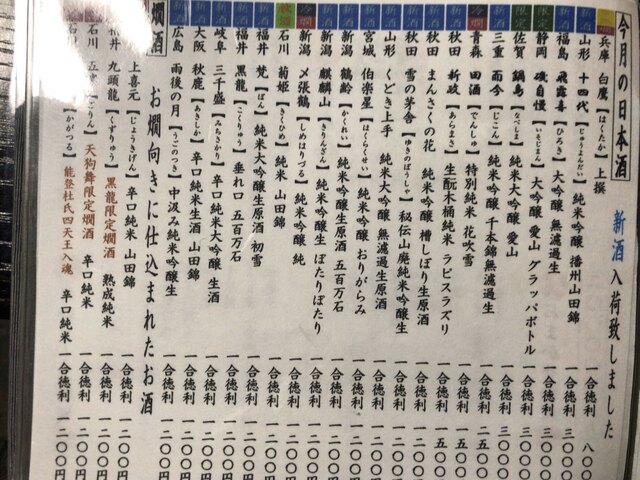 今月の日本酒 新酒入荷致しました
兵庫 白鷹【はくたか】上撰 一合徳利 八〇〇
新酒 山形 十四代【じゅうよんだい】純米吟醸 播州山田錦 一合徳利 三〇〇〇
新酒 福島 飛露喜【ひろき】大吟醸 無濾過生 一合徳利 三〇〇〇
限定 静岡 磯自慢【いそじまん】大吟醸 愛山 グラッパボトル 一合徳利 三〇〇〇
限定 佐賀 鍋島【なべしま】純米大吟醸 愛山 一合徳利 三〇〇〇
新酒 三重 而今【じこん】純米吟醸 千本錦無濾過生 一合徳利 三〇〇〇
冷燗 青森 田酒【でんしゅ】特別純米 花吹雪 一合徳利 二五〇〇
新酒 秋田 新政【あらまさ】生酛木桶純米 ラピスラズリ 一合徳利 一五〇〇
新酒 秋田 まんさくの花 純米吟醸 槽しぼり生原酒 一合徳利 一五〇〇
新酒 秋田 雪の茅舎【ゆきのぼうしゃ】秘伝山廃純米吟醸生 一合徳利 一二〇〇
新酒 山形 くどき上手 純米大吟醸 無濾過生原酒 一合徳利 一二〇〇
新酒 宮城 伯楽星【はくらくせい】純米吟醸 おりがらみ 一合徳利 一二〇〇
新酒 新潟 鶴齢【かくれい】純米吟醸生原酒 五百万石 一合徳利 一二〇〇
新酒 新潟 麒麟山【きりんざん】純米吟醸生 ぽたりぽたり 一合徳利 一二〇〇
冷燗 新潟 〆張鶴【しめはりづる】純米吟醸 純 一合徳利 一二〇〇
石川 菊姫【きくひめ】純米 山田錦 一合徳利 一二〇〇
新酒 福井 梵【ぼん】純米大吟醸生原酒 初雪 一合徳利 一二〇〇
新酒 福井 黒龍【こくりゅう】垂れ口 五百万石 一合徳利 一二〇〇
新酒 岐阜 三千盛【みちさかり】辛口純米大吟醸 生酒 一合徳利 一二〇〇
新酒 大阪 秋鹿【あきしか】辛口純米生酒 山田錦 一合徳利 一二〇〇円
新酒 広島 雨後の月【うごのつき】中汲み純米吟醸生 一合徳利 一二〇〇円
燗酒 お燗向きに仕込まれたお酒
上喜元【じょうきげん】辛口純米 山田錦 一合徳利 一二〇〇円
福井 九頭龍【くずりゅう】黒龍限定燗酒 熟成純米 一合徳利 一二〇〇円
石川 天狗舞限定燗酒 辛口純米 一合徳利 一二〇〇円
【かがつる】能登杜氏四天王入魂 辛口純米 一合徳利 一二〇〇円